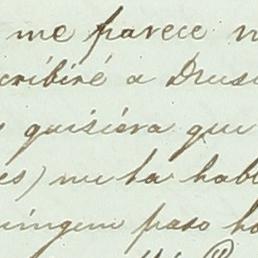 me parece
cribiré a Drus
quisiera que
es) me ha habl
ningun paso ha